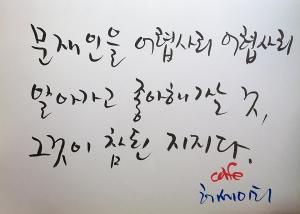 문재인을 어렵사리 어렵사리
알아가고 좋아해 갈 것,
그것이 참된 지지다.
cafe